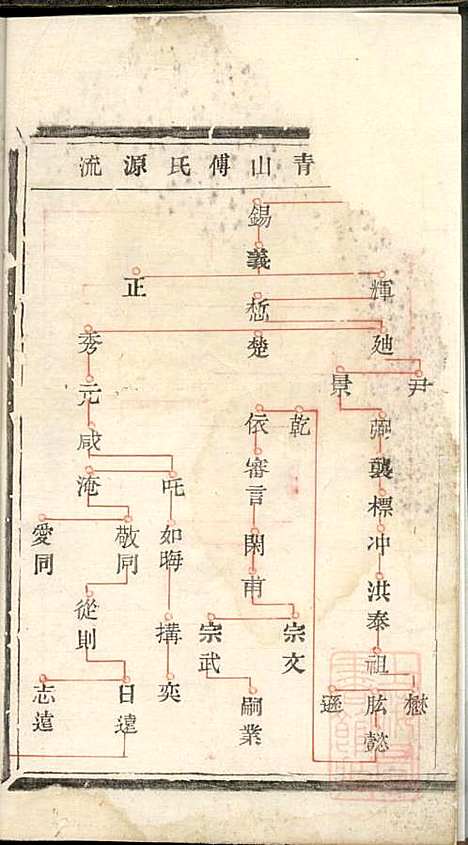 青山傅氏源流
錫
義
輝
正
慙
廸
楚
秀
尹
景
元
乾
依
咸
襲
審言
淹
吒
標
冲
閑
敬同
愛同
如晦
洪泰
甫
從則
搆
宗文
宗武
祖
奕
懋
肱懿
遜
嗣業
日遠
志遠